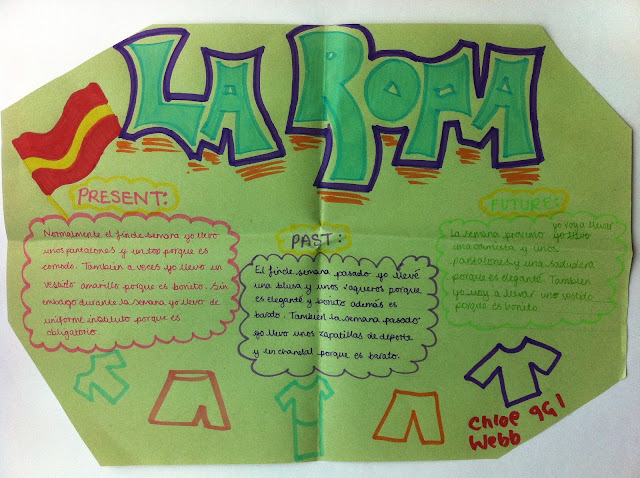 LA ROPA
PRESENT:
Normalmente el finde semana yo llevo
unos pantalones y un top porque es
comodo. Tambien a veces yo llevo un
vestido amarillo porque es bonito. Sin
embargo durante la semana yo llevo de
uniforme instituto porque es
obligatorio.
PAST:
El finde semana pasado yo llevé
una blusa y unos vaqueros porque
es elegante y bonito además es
barato. Tambien la semana pasado
yo llevo unos zapatillas de deporte
y un chandal porque es barato.
FUTURE:
yo voy a llevar
La semana proximo yo llevo
una camista y unos
pantalones y una sadudera
porque es elegante. Tambien
yo voy a llevar uno vestido
porque es bonito.
Chloe 9G1
Webb